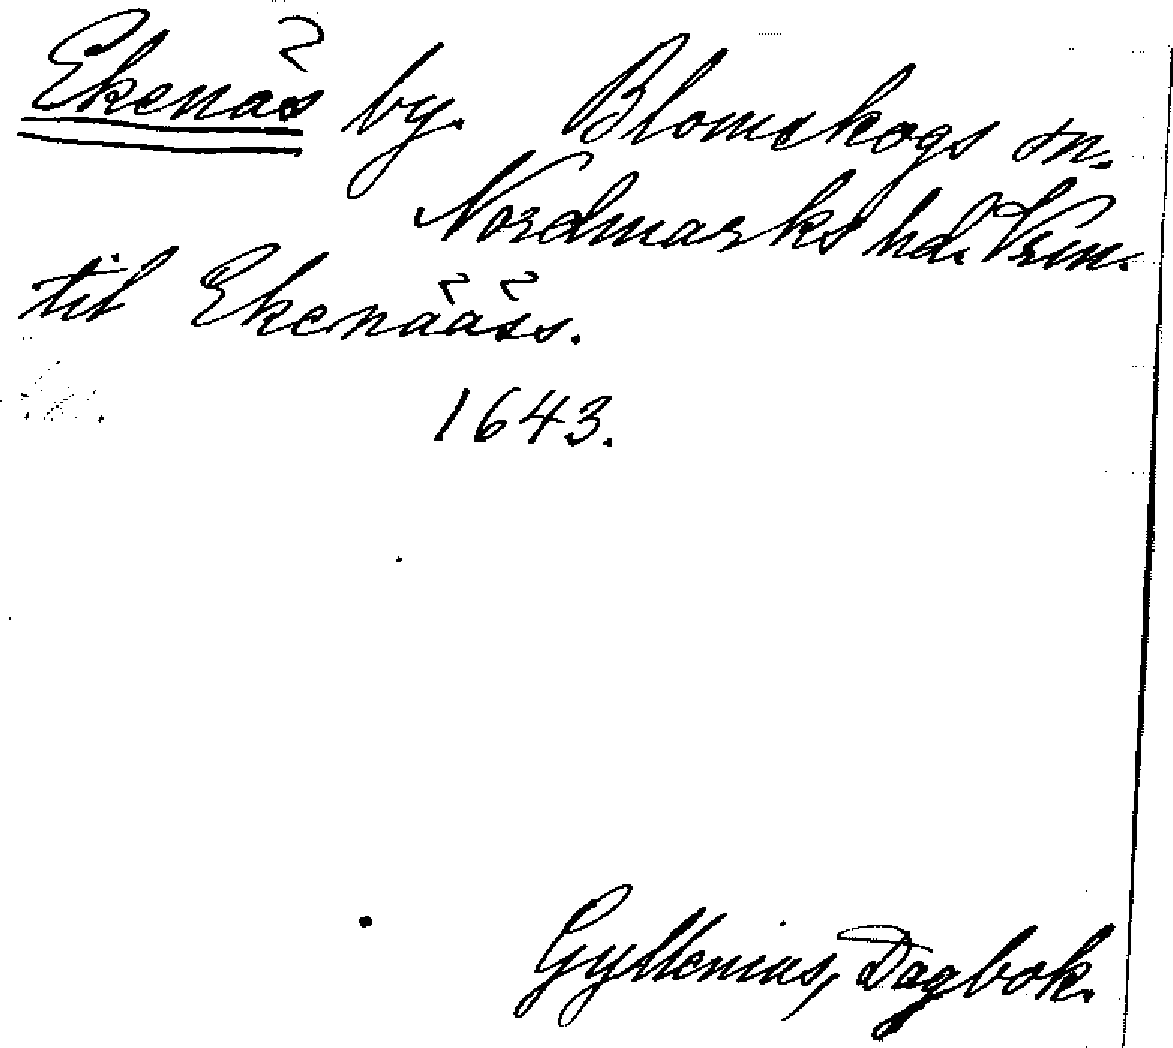 Ekenäs by. Blomskogs sn.
Nordmarks hd. Vrm.
til Ekenääss.
1643.
Gyllenius, Dagbok.